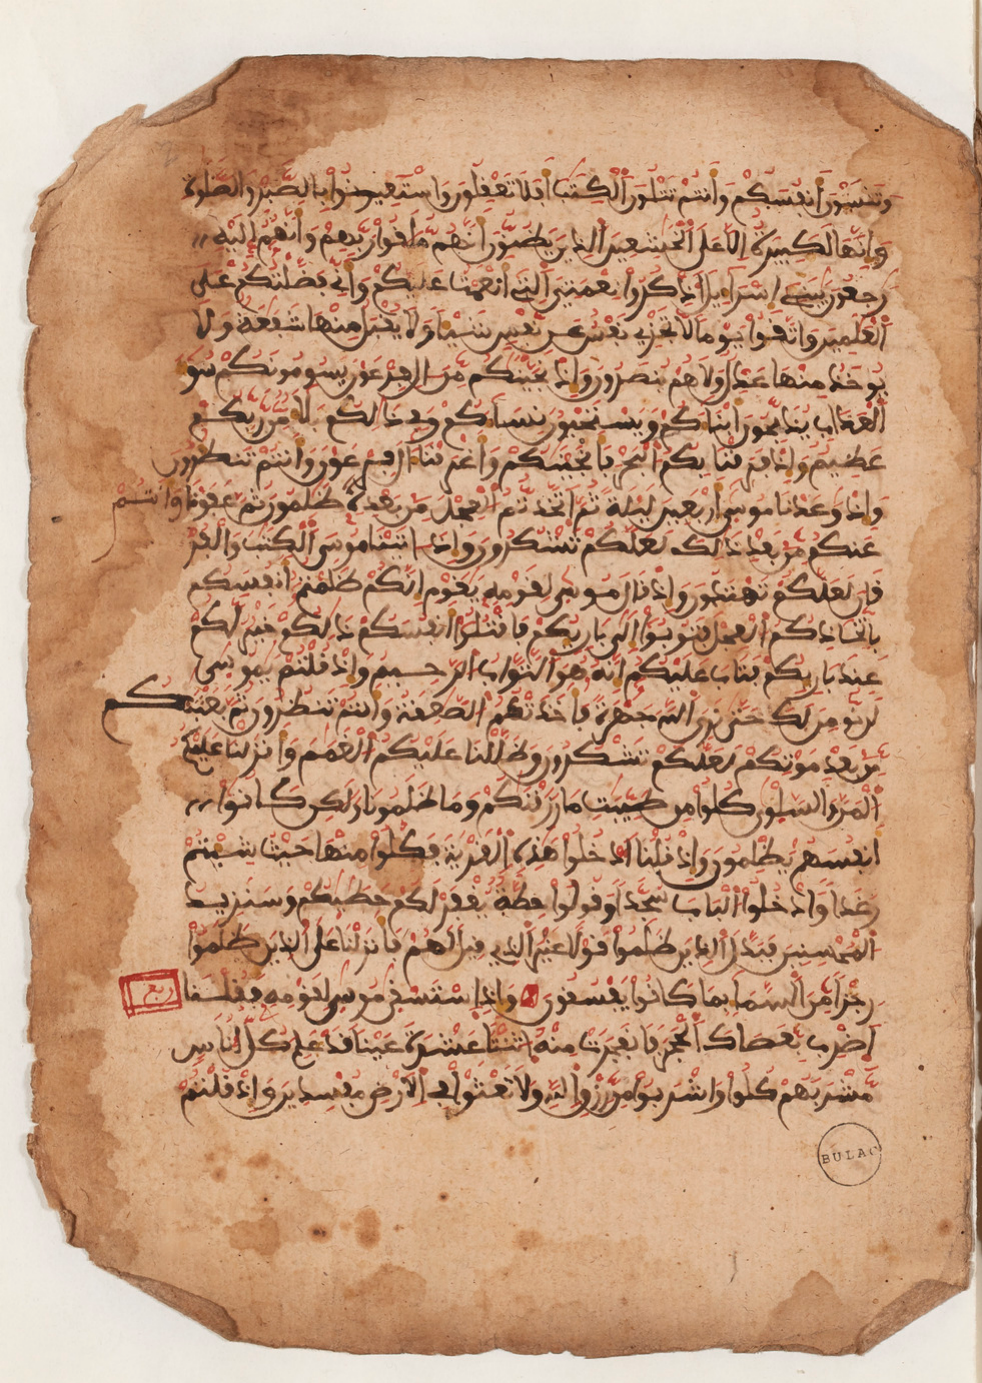 وتنسون أنفسكم وأنتم تتلون الكتب أفلا تعقلون واستعينوا بالصبر والصلوة
وإنها لكبيرة إلا على الخشعين الذين يظنون أنهم ملقوا ربهم وأنهم إليه
رجعون يبني إسراءيل اذكروا نعمتي التي أنعمت عليكم وأني فضلتكم على
العلمين واتقوا يوما لا تجزي نفس عن نفس شيئا ولا يقبل منها شفعة ولا
يوخذ منها عدل ولا هم ينصرون وإذ نجينكم من ال فرعون يسومونكم سو
العذاب يذبحون أبناكم ويستحيون نساكم وفي ذالكم بلا من ربكم
عظيم وإذ فرقنا بكم البحر فأنجينكم وأغرقنا ال فرعون وأنتم تنظرون
وإذ وعدنا موسى أربعين ليلة ثم اتخذتم العجل من بعده وأنتم ظلمون ثم عفونا
عنكم من بعد ذالك لعلكم تشكرون وإذ اتينا موسى الكتب والفر
قان لعلكم تهتدون وإذ قال موسى لقومه يقوم إنكم ظلمتم أنفسكم
باتخاذكم العجل فتوبوا إلى باريكم فاقتلوا أنفسكم ذالكم خير لكم
عند باريكم فتاب عليكم إنه هو التواب الرحيم وإذ قلتم يموسى
لن نومن لك حتى نرى الله جهرة فأخذتكم الصعقة وأنتم تنظرون ثم بعثنكم
من بعد موتكم لعلكم تشكرون وظللنا عليكم الغمم وأنزلنا عليكم
المن والسلوى كلوا من طيبت ما رزقنكم وما ظلمونا ولكن كانوا
أنفسهم يظلمون وإذ قلنا ادخلوا هذه القرية فكلوا منها حيث شيتم
رغدا وادخلوا الباب سجدا وقولوا حطة يغفر لكم خطيكم وسنزيد
المحسنين فبدل الذين ظلموا قولا غير الذي قيل لهم فأنزلنا على الذين ظلموا
رجزا من السما بما كانوا يفسقون وإذ استسقى موسى لقومه فقلنا ربع
اضرب بعصاك الحجر فانفجرت منه اثنتا عشرة عينا قد علم كل أناس
مشربهم كلوا واشربوا من رزق الله ولا تعثوا في الأرض مفسدين وإذ قلتم
BULAC